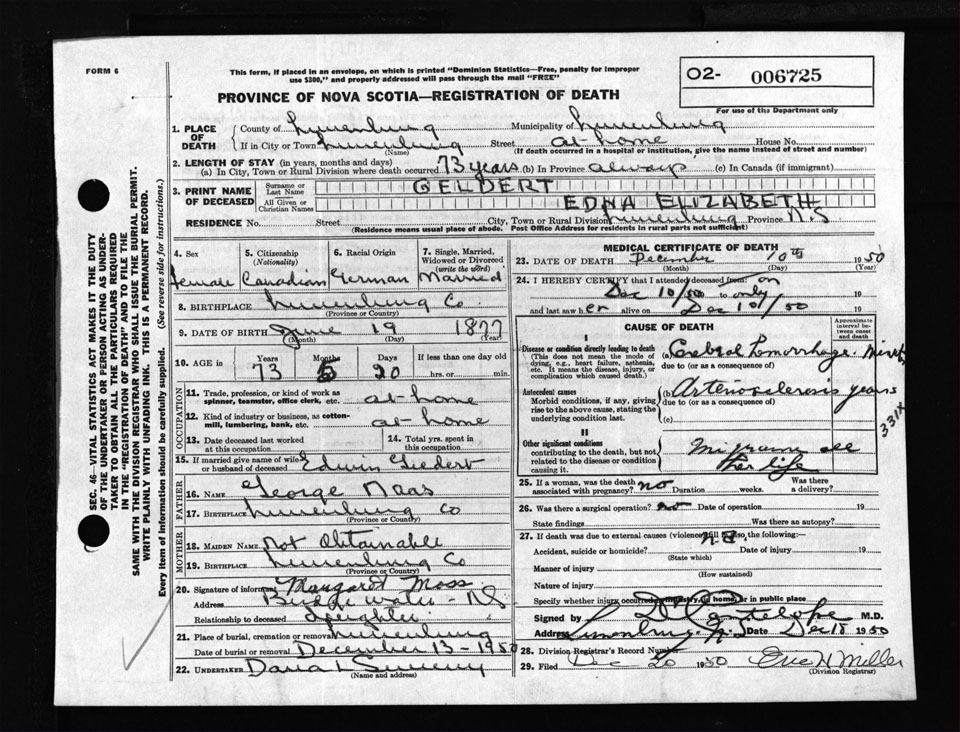 FORM 6
This form, if placed in an envelope, on which is printed "Dominion Statistics—Free, penalty for improper
use $300," and properly addressed will pass through the mail "FREE"
O2- 006725
For use of the Department only
PROVINCE OF NOVA SCOTIA—REGISTRATION OF DEATH
1. PLACE OF DEATH
County of Lunenburg Municipality of Lunenburg
If in City or Town Lunenburg Street at home House No.
(Name) (If death occurred in a hospital or institution, give the name instead of street and number)
2. LENGTH OF STAY (in years, months and days)
(a) In City, Town or Rural Division where death occurred 73 years (b) In Province always (c) In Canada (if immigrant)
3. PRINT NAME OF DECEASED
Surname or Last Name GELDERT
All Given or Christian Names EDNA ELIZABETH
RESIDENCE No. Street City, Town or Rural Division Lunenburg Province N.S
(Residence means usual place of abode. Post Office Address for residents in rural parts not sufficient)
4. Sex 5. Citizenship (Nationality) 6. Racial Origin 7. Single, Married, Widowed or Divorced (write the word)
Female Canadian German Married
8. BIRTHPLACE Lunenburg Co.
(Province or Country)
9. DATE OF BIRTH June 19 1877
(Month) (Day) (Year)
10. AGE in Years Months Days If less than one day old
73 5 20 hrs. or min.
OCCUPATION
11. Trade, profession, or kind of work as spinner, teamster, office clerk, etc. at home
12. Kind of industry or business, as cotton-mill, lumbering, bank, etc. at home
13. Date deceased last worked at this occupation 14. Total yrs. spent in this occupation
15. If married give name of wife or husband of deceased Edwin Geldert
FATHER
16. NAME George Maas
17. BIRTHPLACE Lunenburg Co
(Province or Country)
MOTHER
18. MAIDEN NAME Not Obtainable
19. BIRTHPLACE Lunenburg Co
(Province or Country)
20. Signature of informant Margaret Moss
Address Bridgewater - NS
Relationship to deceased Daughter
21. Place of burial, cremation or removal Lunenburg
Date of burial or removal December 13 - 1950
22. UNDERTAKER Sweeny
(Name and address)
MEDICAL CERTIFICATE OF DEATH
23. DATE OF DEATH December 10th 1950
(Month) (Day) (Year)
24. I HEREBY CERTIFY that I attended deceased from: on
Dec 10/50 to only
and last saw her alive on Dec 10/50
CAUSE OF DEATH
Approximate interval between onset and death
I
Disease or condition directly leading to death
(This does not mean the mode of dying, e.g., heart failure, asthenia, etc. It means the disease, injury, or complication which caused death.)
(a) Cerebral hemorrhage.
due to (or as a consequence of)
Antecedent causes
Morbid conditions, if any, giving rise to the above cause, stating the underlying condition last.
(b) Arteriosclerosis years
due to (or as a consequence of)
(c)
331X
II
Other significant conditions
contributing to the death, but not related to the disease or condition causing it.
Migraine all
her life
25. If a woman, was the death associated with pregnancy? no Duration weeks. Was there a delivery?
26. Was there a surgical operation? no Date of operation 19
State findings Was there an autopsy?
27. If death was due to external causes (violence) fill in also the following:—
n.a.
Accident, suicide or homicide? Date of injury 19
(State which)
Manner of injury
(How sustained)
Nature of injury
Specify whether injury occurred in industry, in home, or in public place
Signed by Santelope M.D.
Address Lunenburg. N.S Date Dec 18 1950
28. Division Registrar's Record Number
29. Filed Dec 20 1950 Eric H Miller
(Division Registrar)
SEC. 46—VITAL STATISTICS ACT MAKES IT THE DUTY
OF THE UNDERTAKER OR PERSON ACTING AS UNDER-
TAKER TO OBTAIN ALL THE PARTICULARS REQUIRED
IN THE "REGISTRATION OF DEATH" AND TO FILE THE
SAME WITH THE DIVISION REGISTRAR WHO SHALL ISSUE THE BURIAL PERMIT.
WRITE PLAINLY WITH UNFADING INK. THIS IS A PERMANENT RECORD.
Every item of information should be carefully supplied. (See reverse side for instructions.)